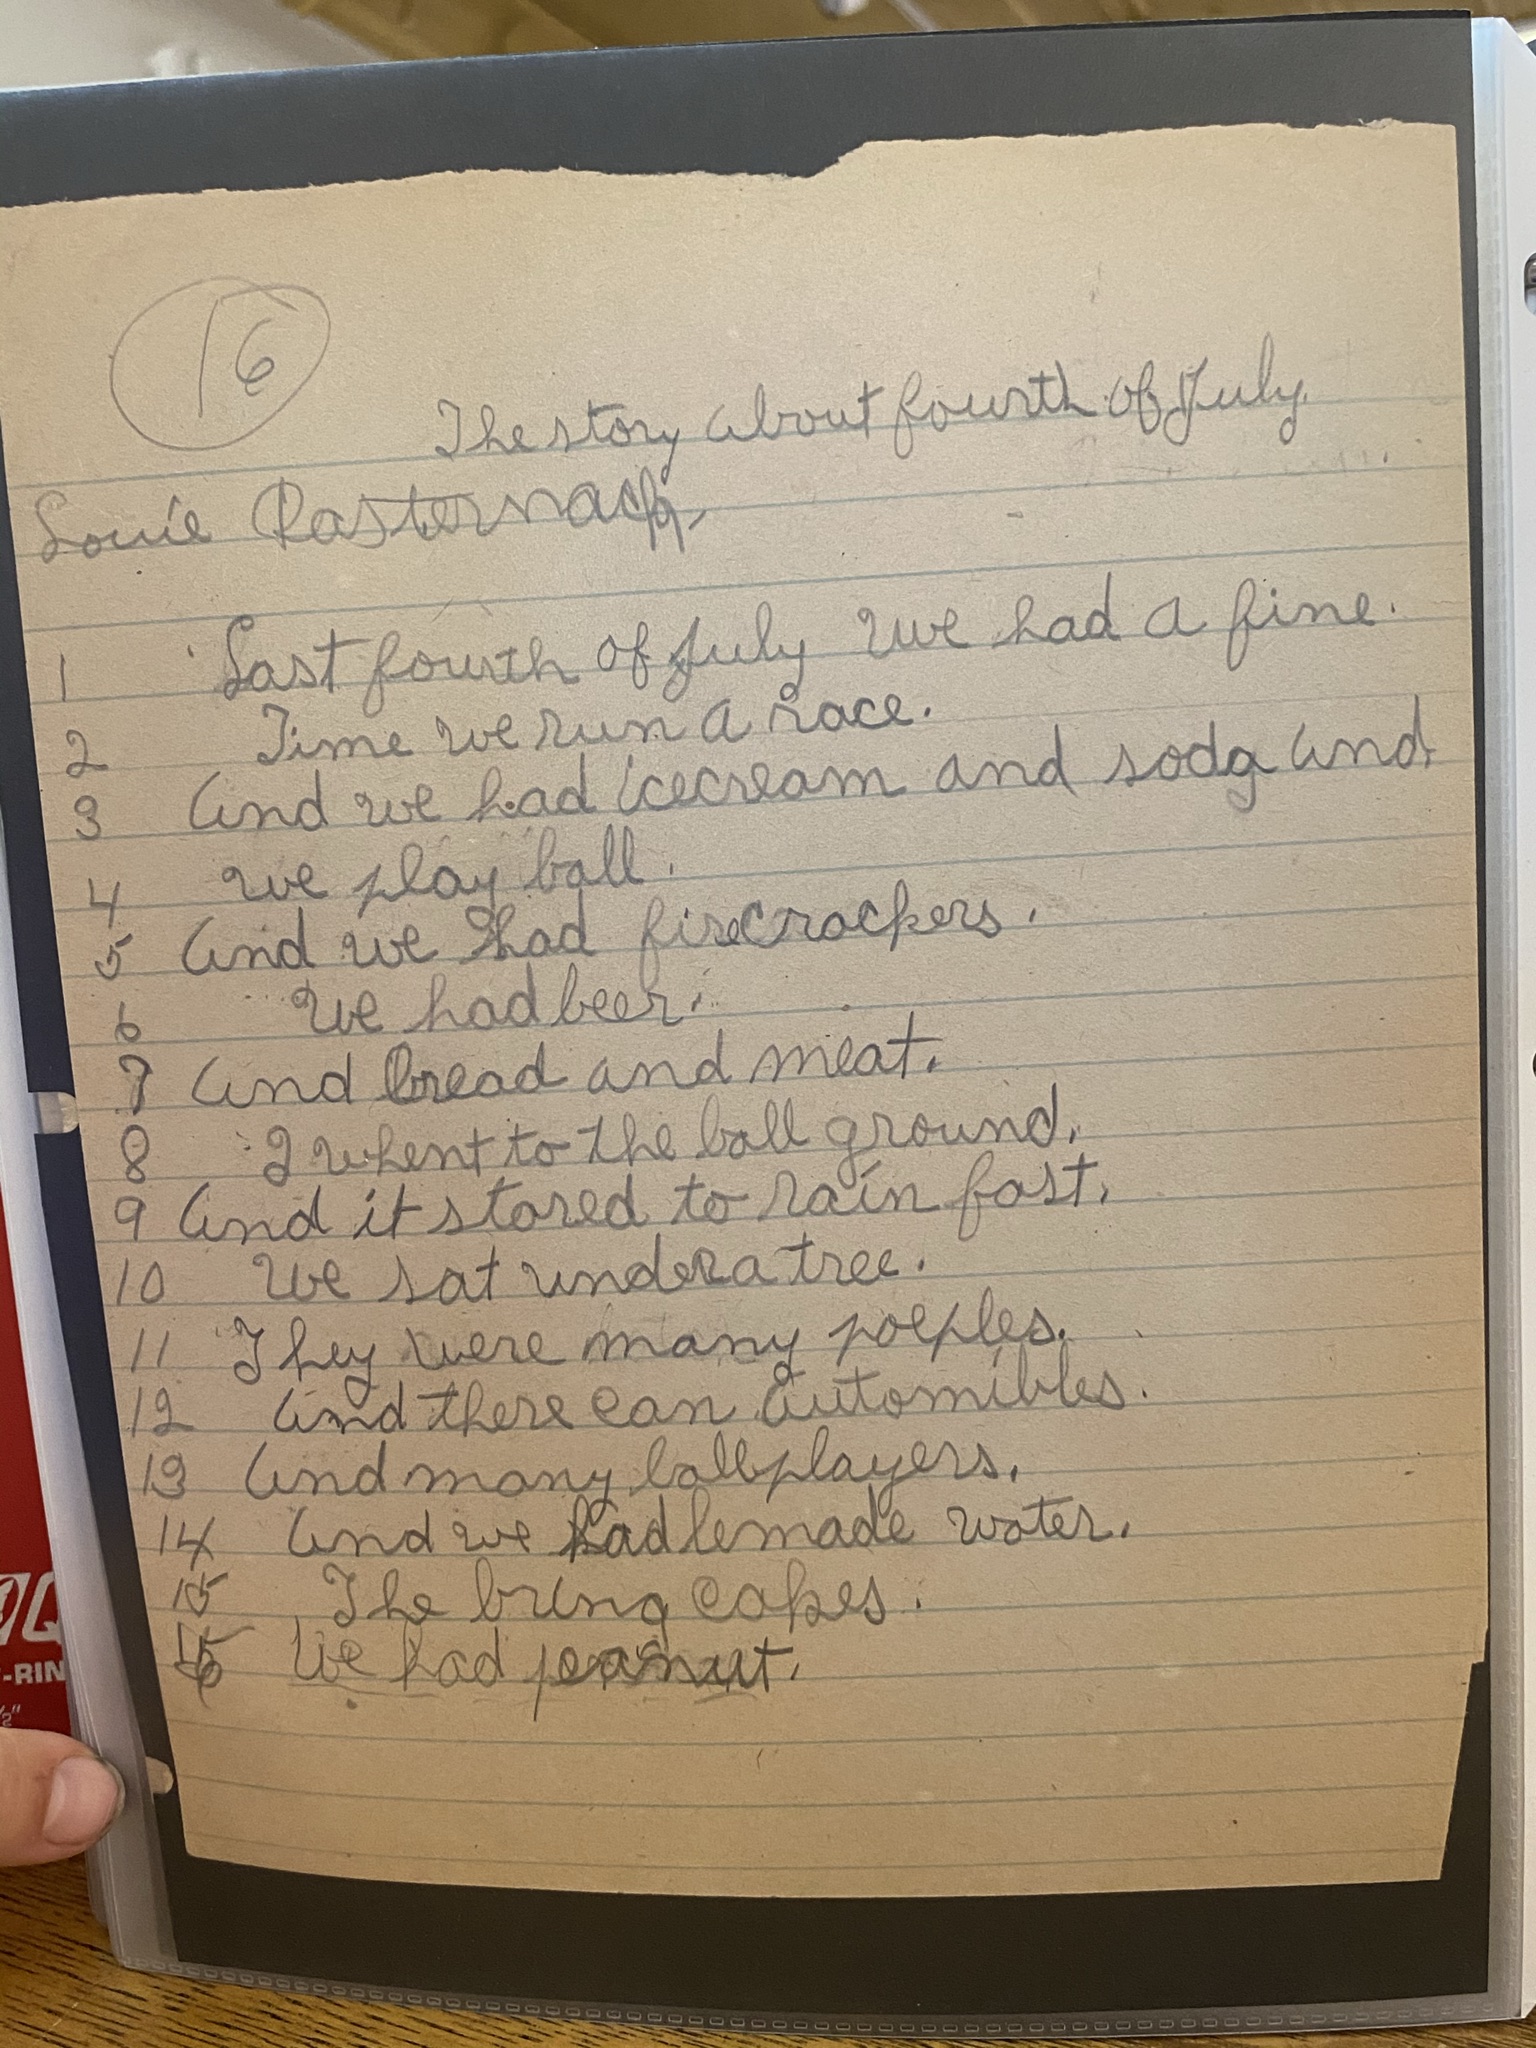 16
The story about fourth of July.
Louie Pasternack,
1 Last fourth of July we had a fine.
2 Time we run a race.
3 And we had icecream and soda and
4 we play ball.
5 And we had firecrackers.
6 We had beer.
7 And bread and meat.
8 I whent to the ball ground.
9 And it stared to rain fast.
10 We sat under a tree.
11 They were many poeples.
12 And there can automibles.
13 And many ballplayers.
14 And we had lemade water.
15 The bring cakes.
16 We had peanut.
-RIN
½"